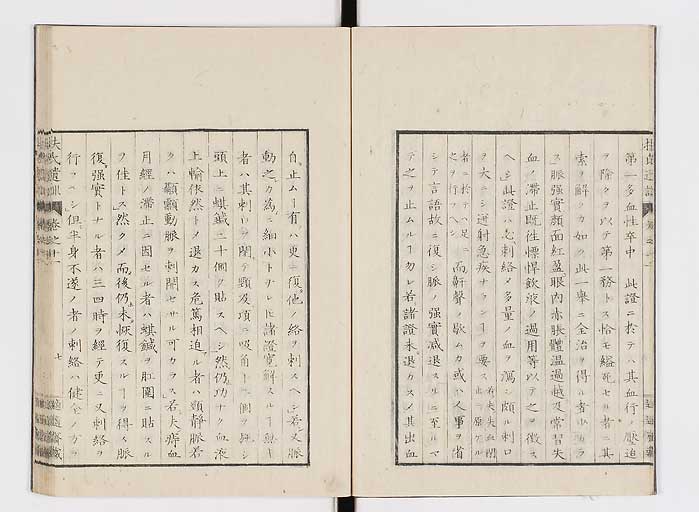 第一多血性卒中　此證ニ於テハ其血行ノ壓迫
ヲ除クヲ以テ第一務トス恰モ縊死セル者ニ其
索ヲ解クカ如ク此一擧ニ全治ヲ得ル者少カラ
ス脈強實顔面紅盈眼內赤脹體温過越及常習失
血ノ滯止既往慓悍飲液ノ過用等以テ之ヲ徴ス
ヘシ此證ハ先刺絡メ多量ノ血ヲ瀉シ頗ル刺口
ヲ大ニシ迸射急疾ナラシムヿヲ要ス
者ニ於テハ足ニ之ヲ行フヘシ而鼾聲ノ歇ムカ或ハ人事ヲ省
シテ言語故ニ復シ脈ノ強實減退スルニ至ルマ
テ之ヲ止ムルヿ勿レ若諸證未退カスメ其出血
自止ムヿ有ハ更ニ復他ノ絡ヲ刺スヘシ若又脈
動之カ為ニ細小トナレ𪜈諸證寛解スルヿ無キ
者ハ其刺口ヲ閉テ頸及項ニ吸角十二個ヲ施シ
頭上ニ蜞鍼二十個ヲ貼スヘシ然仍功ナク血液
上輸依然トメ退カス危篤相迫ル者ハ頸靜脈若
クハ顳顬動脈ヲ刺開セサル可カラス若夫痔血
月經ノ滯止ニ因セル者ハ蜞鍼ヲ肛圍ニ貼スル
ヲ佳トス然クメ而後仍未恢復スルヿヲ得ス脈
復強實トナル者ハ三四時ヲ經テ更ニ又刺絡ヲ
行フヘシ但半身不遂ノ者ノ刺絡ハ健全ノ方ヲ
扶氏遺訓　卷之十一
七